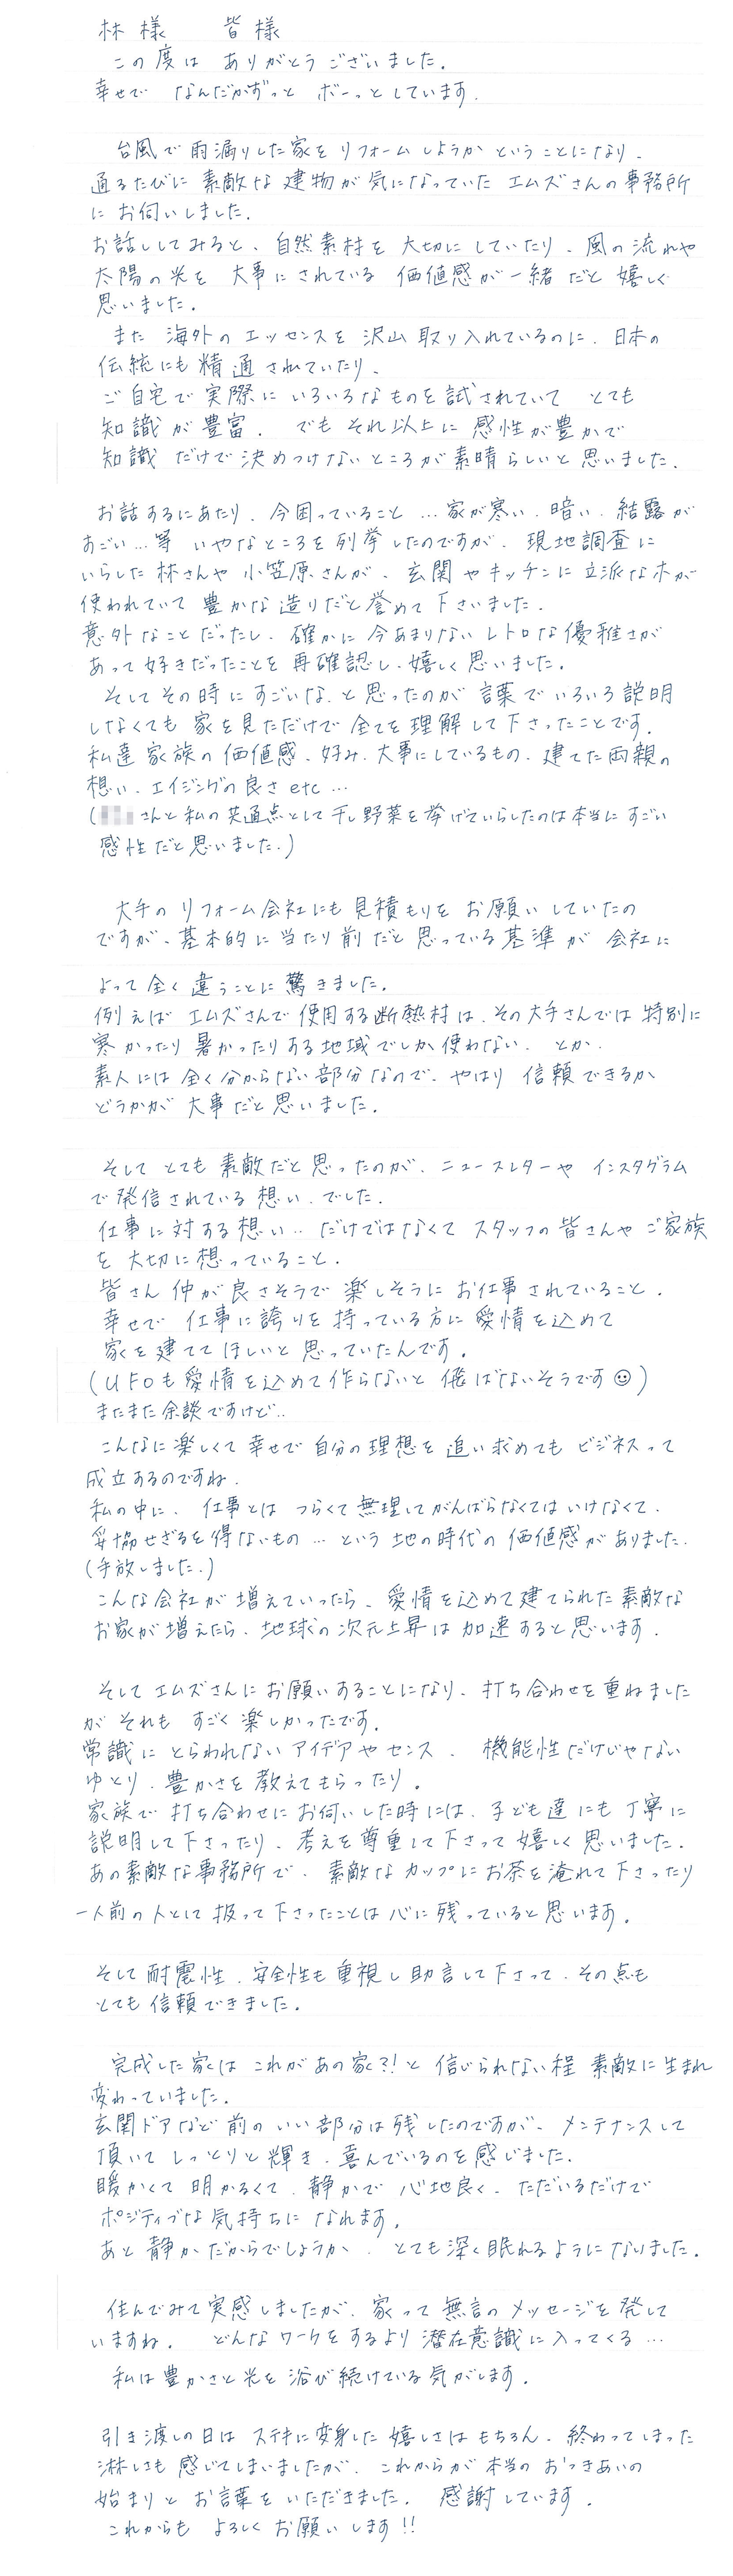 林様　皆様
この度は ありがとうございました。
幸せで なんだかずっと ボーっとしています。
台風で雨漏りした家を リフォームしようか ということになり、
通るたびに 素敵な建物が気になっていた エムズさんの事務所
にお伺いしました。
お話ししてみると、自然素材を 大切にしていたり、風の流れや
太陽の光を 大事にされている 価値感が一緒だと 嬉しく
思いました。
また 海外のエッセンスを 沢山取り入れているのに、日本の
伝統にも精通されていたり、
ご自宅で実際に いろいろなものを試されていて とても
知識が豊富。 でも それ以上に 感性が豊かで
知識 だけで決めつけないところが素晴らしいと思いました。
お話するにあたり、今困っていること …家が寒い、暗い、結露が
すごい…等 いやなところを列挙したのですが、現地調査に
いらした林さんや小笠原さんが、玄関やキッチンに立派な木が
使われていて 豊かな造りだと誉めて下さいました。
意外なことだったし、確かに今あまりない レトロな優雅さが
あって好きだったことを再確認し、嬉しく思いました。
そしてその時にすごいな、と思ったのが 言葉でいろいろ説明
しなくても 家を見ただけで 全てを理解して下さったことです。
私達家族の価値感、好み、大事にしているもの、建てた両親の
想い、エイジングの良さ etc …
(さんと私の共通点として干し野菜を挙げていらしたのは本当にすごい
感性だと思いました。)
大手のリフォーム会社にも見積もりを お願いしていたの
ですが、基本的に当たり前だと思っている基準が 会社に
よって全く違うことに驚きました。
例えば エムズさんで使用する断熱材は、その大手さんでは特別に
寒かったり暑かったりする地域でしか使わない、とか、
素人には全く分からない部分なので、やはり 信頼できるか
どうかが 大事だと思いました。
そして とても 素敵だと思ったのが、ニュースレターや インスタグラム
で発信されている想い、でした。
仕事に対する想い‥ だけではなくて スタッフの皆さんや ご家族
を 大切に想っていること。
皆さん 仲が良さそうで 楽しそうに お仕事されていること。
幸せで 仕事に誇りを持っている方に愛情を込めて
家を建ててほしいと思っていたんです。
(UFOも愛情を込めて作らないと 飛ばないそうです☺)
またまた余談ですけど‥
こんなに楽しくて幸せで自分の理想を追い求めても ビジネスって
成立するのですね。
私の中に、仕事とは つらくて無理してがんばらなくてはいけなくて、
妥協せざるを得ないもの … という 地の時代の価値感がありました。
(手放しました。)
こんな会社が増えていったら、愛情を込めて建てられた素敵な
お家が増えたら、地球の次元上昇は加速すると思います。
そして エムズさんにお願いすることになり、打ち合わせを重ねました
が それも すごく楽しかったです。
常識に とらわれない アイデアやセンス、 機能性だけじゃない
ゆとり、豊かさを教えてもらったり。
家族で打ち合わせにお伺いした時には、子ども達にも丁寧に
説明して下さったり、考えを尊重して下さって嬉しく思いました。
あの素敵な事務所で、素敵なカップにお茶を淹れて下さったり
一人前の人として扱って下さったことは心に残っていると思います。
そして耐震性、安全性も重視し助言して下さって、その点も
とても信頼できました。
完成した家は これがあの家?! と 信じられない程 素敵に生まれ
変わっていました。
玄関ドアなど前のいい部分は残したのですが、メンテナンスして
頂いて しっとりと輝き、喜んでいるのを感じました。
暖かくて 明かるくて、静かで 心地良く、ただいるだけで
ポジティブな気持ちに なれます。
あと 静かだからでしょうか、とても深く眠れるようになりました。
住んでみて実感しましたが、家って 無言のメッセージを発して
いますね。 どんなワークをするより潜在意識に入ってくる …
私は豊かさと光を浴び続けている気がします。
引き渡しの日は ステキに変身した嬉しさはもちろん、終わってしまった
淋しさも感じてしまいましたが、これからが本当のおつきあいの
始まりと お言葉をいただきました。 感謝しています。
これからも よろしく お願いします!!